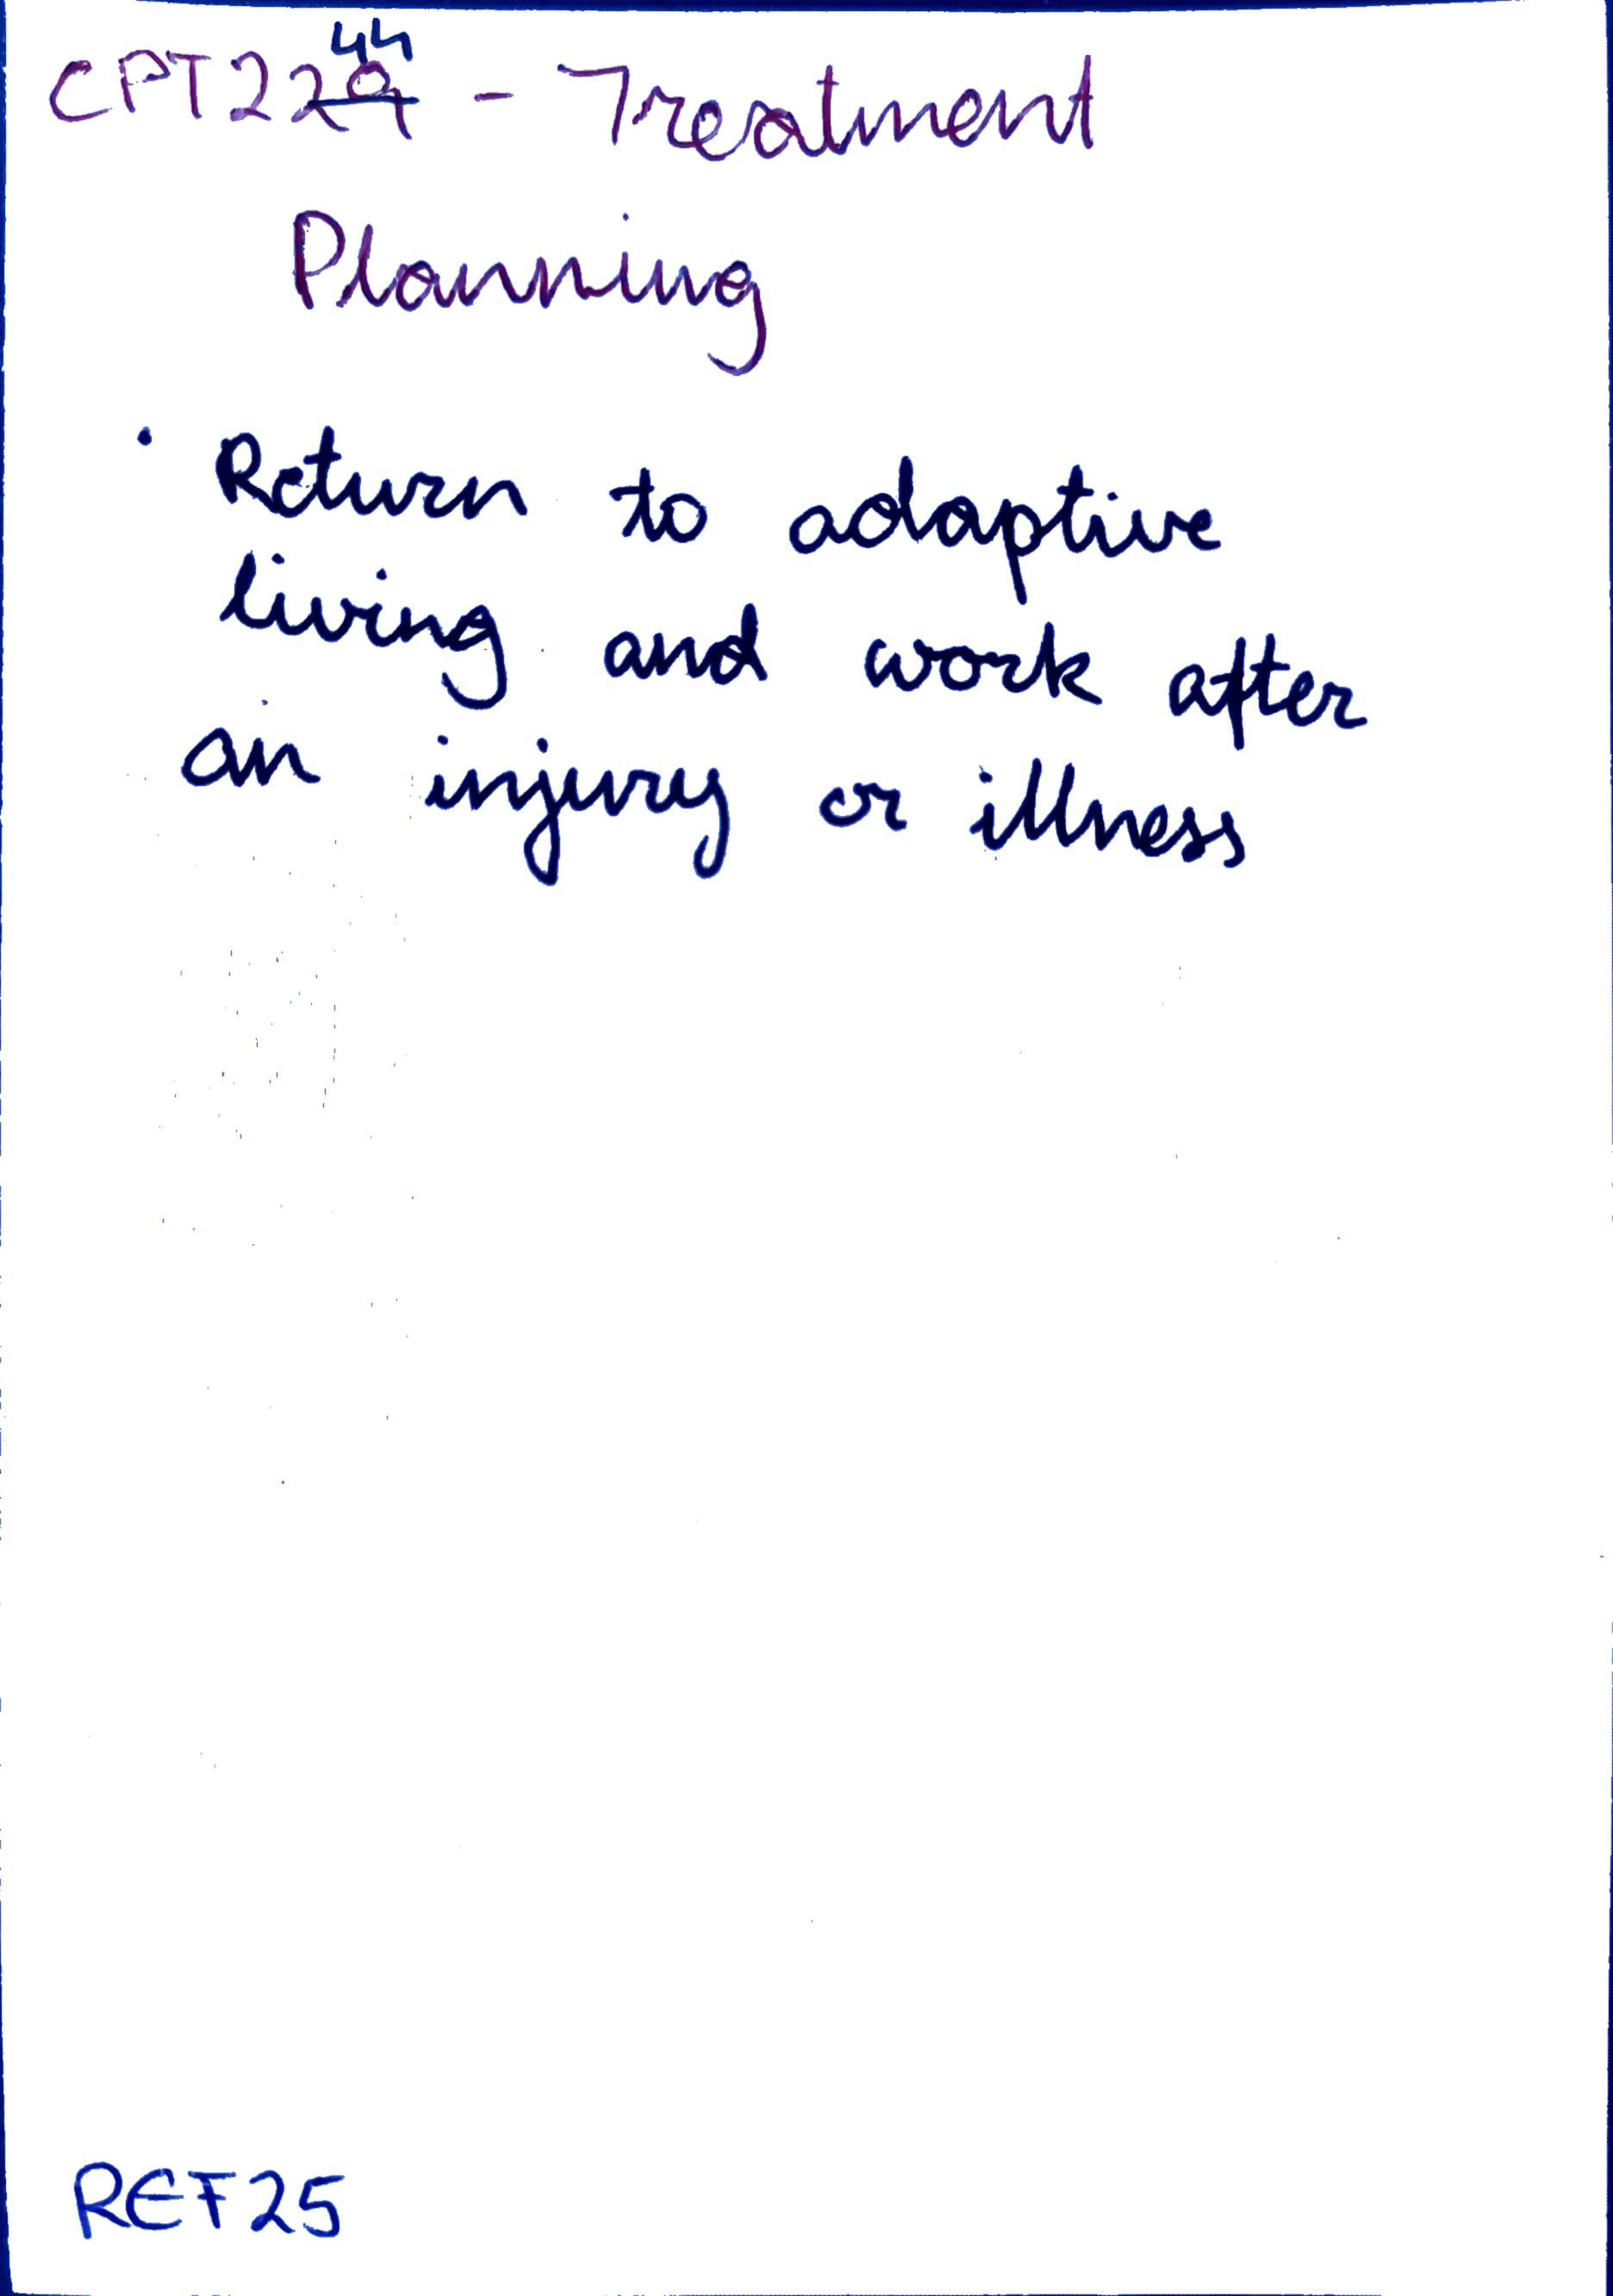 CPT22 44 - Treatment
Planning
• Return to adaptive
living and work after
an injury or illness
REF25